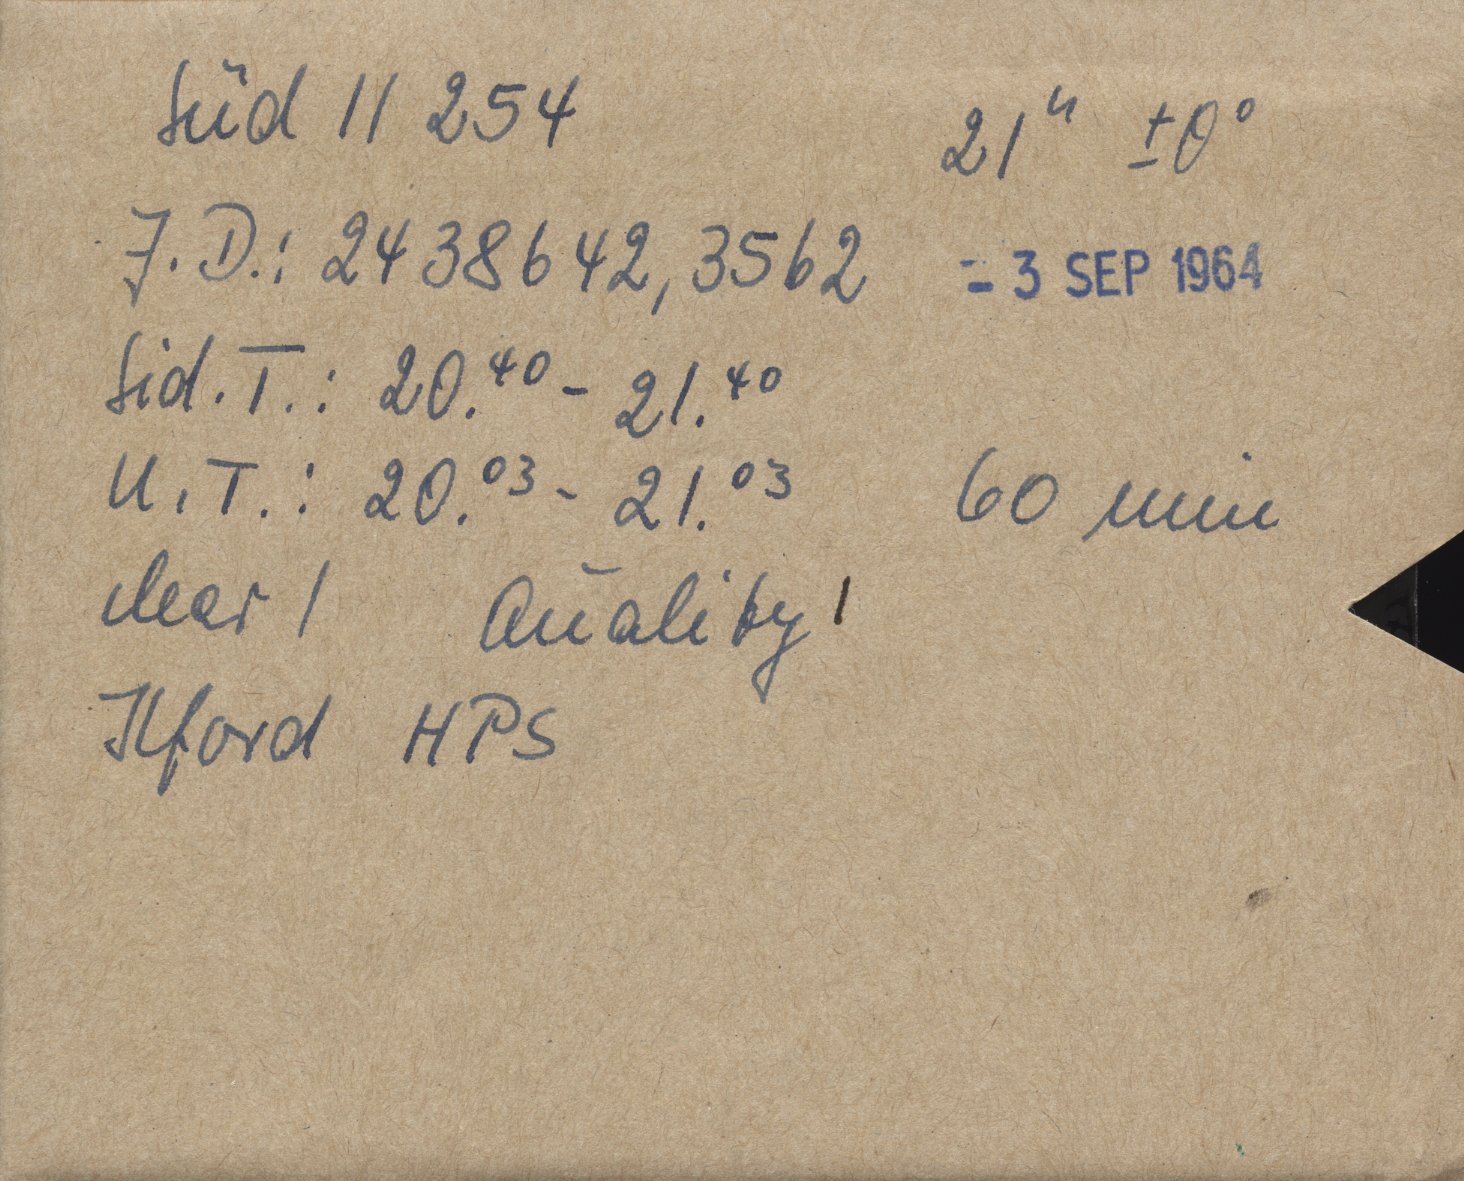 Süd 11 254 21ʰ ±0°
J.D.: 2438642,3562 - 3 SEP 1964
Sid.T.: 20.⁴⁰ - 21.⁴⁰
U.T.: 20.⁰³ - 21.⁰³ 60 min
clear 1 Quality 1
Ilford HPS